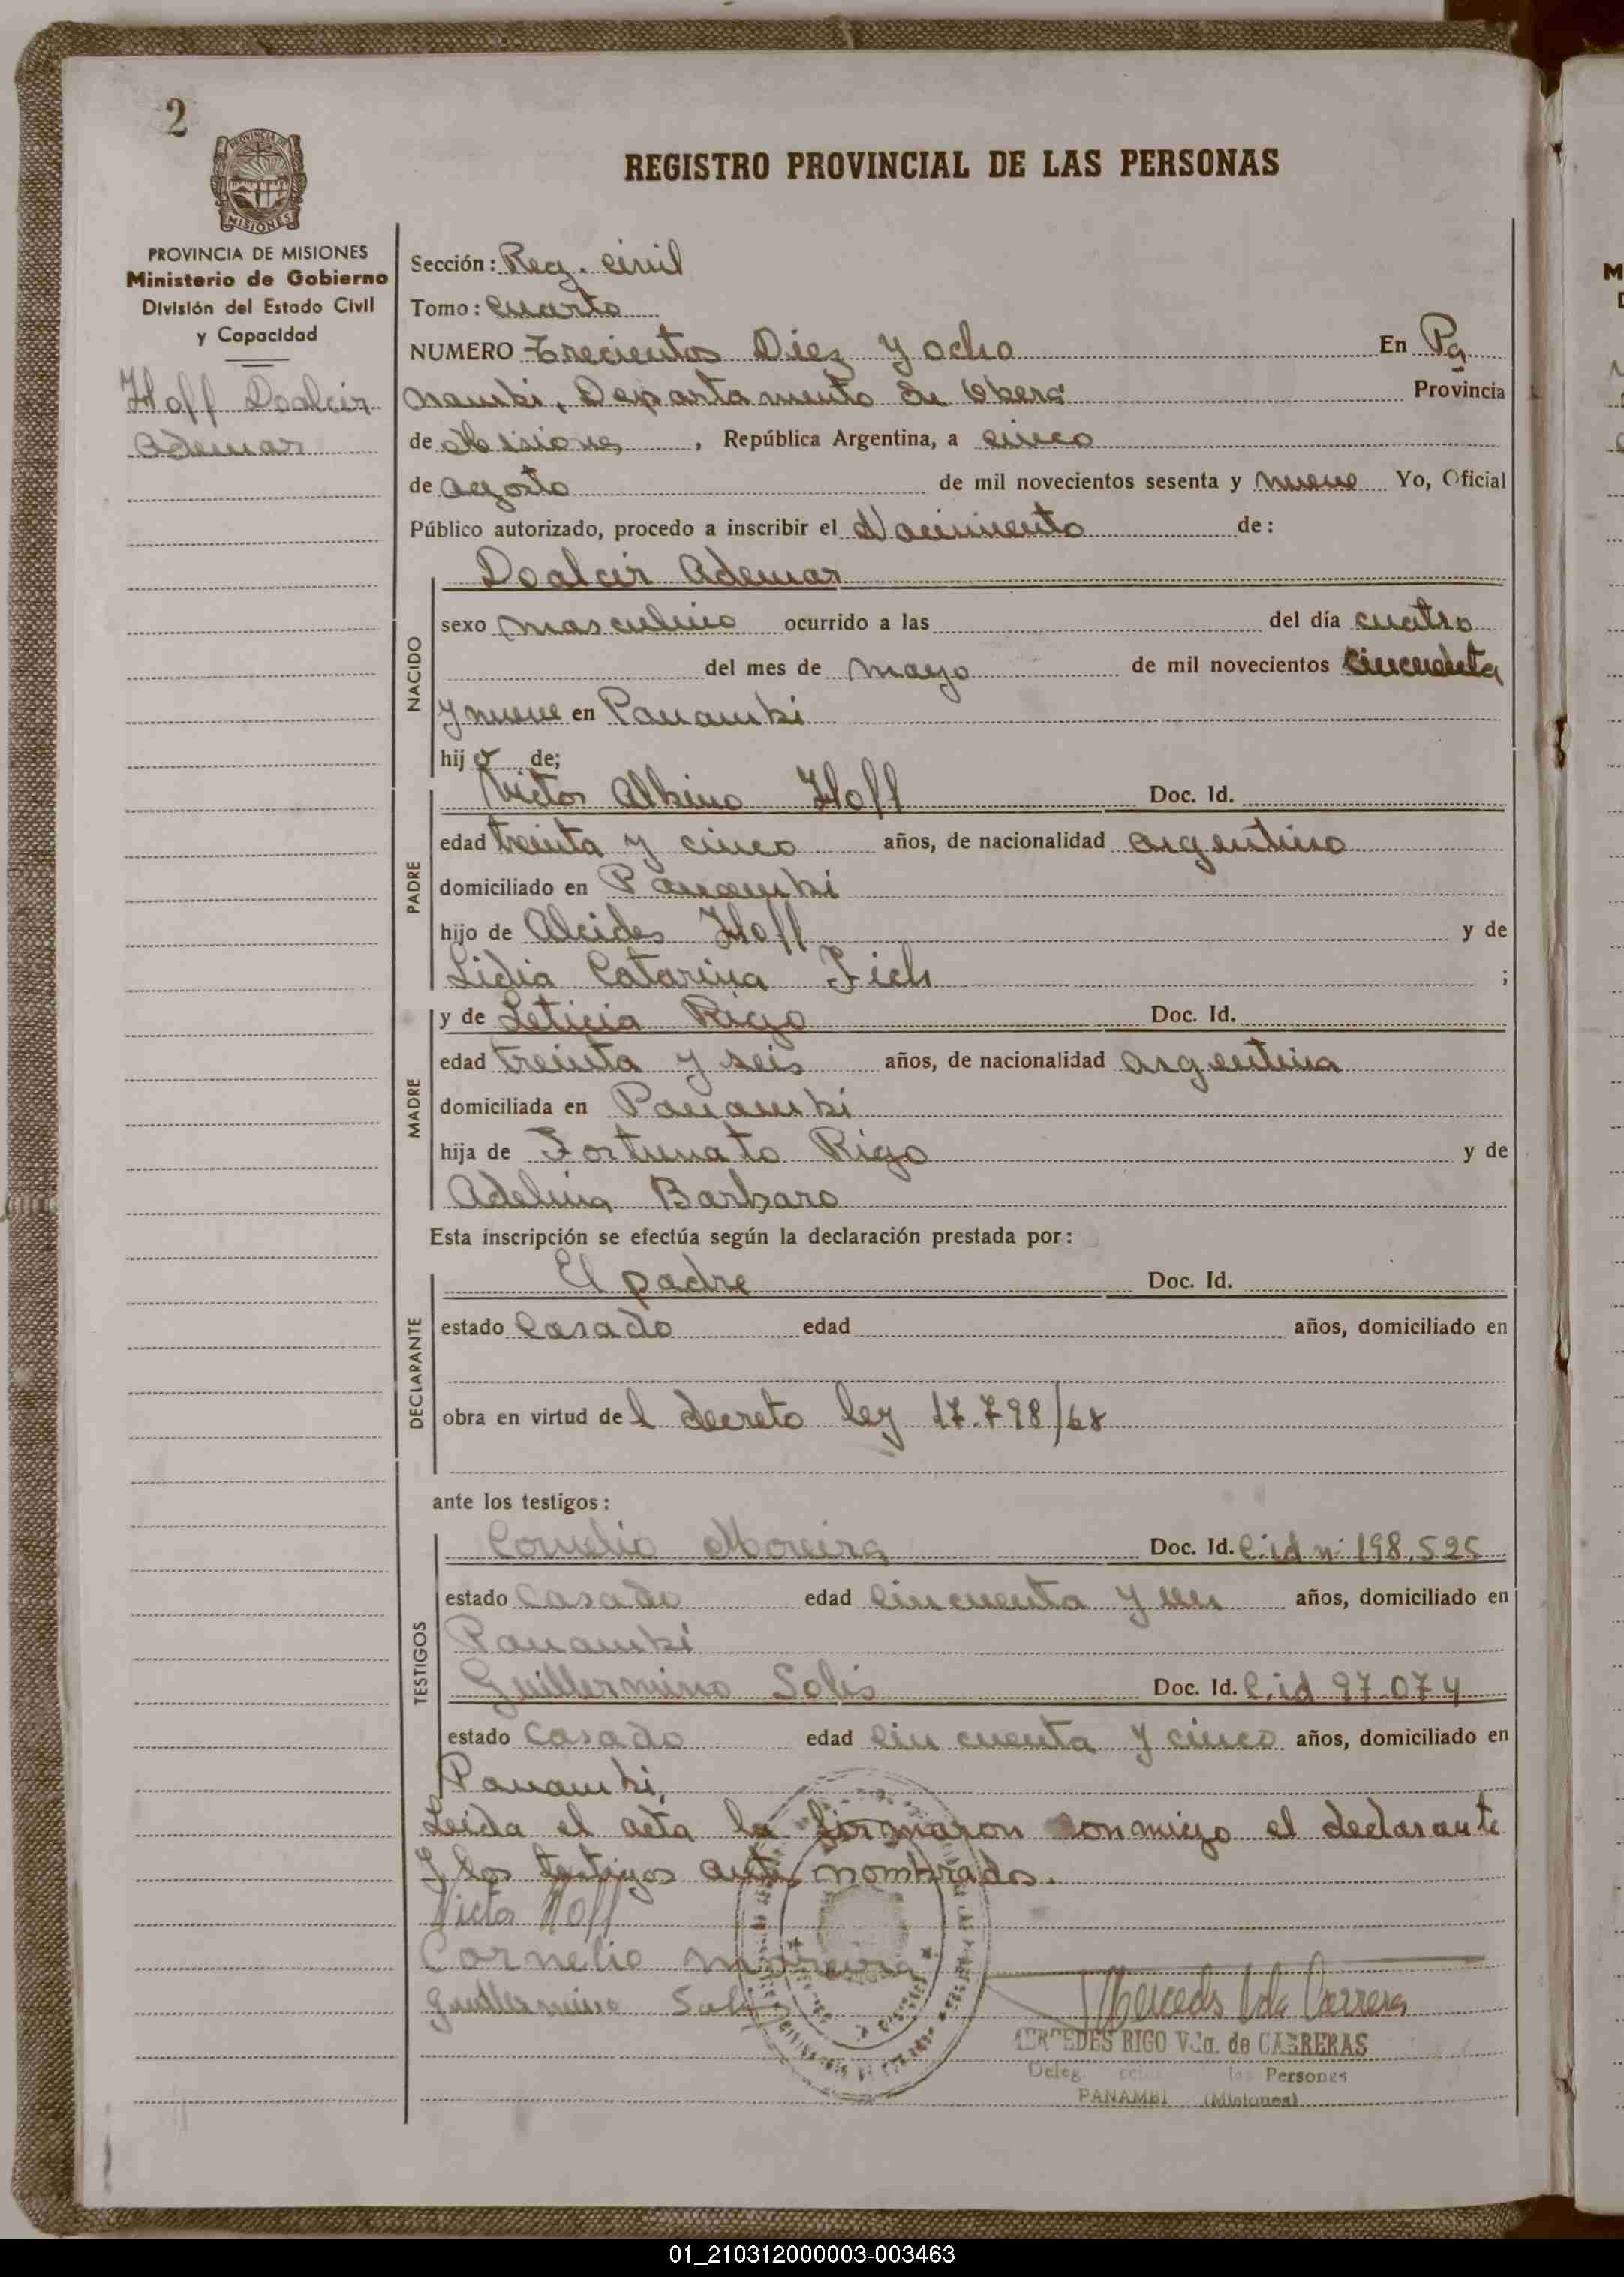 2
PROVINCIA DE MISIONES
Ministerio de Gobierno
División del Estado Civil
y Capacidad
Hoff Doalcir
Ademar
REGISTRO PROVINCIAL DE LAS PERSONAS
Sección: Reg. civil
Tomo: cuarto
NUMERO Trecientos Diez y ocho En Pa
nambi, Departamento de Oberá Provincia
de Misiones, República Argentina, a cinco
de agosto de mil novecientos sesenta y nueve Yo, Oficial
Público autorizado, procedo a inscribir el Nacimiento de:
Doalcir Ademar
NACIDO
sexo masculino ocurrido a las del día cuatro
del mes de mayo de mil novecientos cincuenta
y nueve en Panambi
hijo de;
PADRE
Victor Albino Hoff Doc. Id.
edad treinta y cinco años, de nacionalidad argentino
domiciliado en Panambi
hijo de Alcides Hoff y de
Lidia Catarina Fich ;
MADRE
y de Leticia Rigo Doc. Id.
edad treinta y seis años, de nacionalidad argentina
domiciliada en Panambi
hija de Fortunato Rigo y de
Adelina Barbaro
Esta inscripción se efectúa según la declaración prestada por:
DECLARANTE
El padre Doc. Id.
estado Casado edad años, domiciliado en
obra en virtud del decreto ley 17.798/68
ante los testigos:
TESTIGOS
Cornelio Moreira Doc. Id. C.id n: 198.525
estado Casado edad cincuenta y un años, domiciliado en
Panambi
Guillermino Solis Doc. Id. C.id 97.074
estado Casado edad cincuenta y cinco años, domiciliado en
Panambi,
Leida el acta la firmaron conmigo el declarante
y los testigos antes nombrados.
Victor Hoff
Cornelio Moreira
Guillermino Solis
Mercedes Vda Carrera
MERCEDES RIGO Vda. de CARRERAS
Personas
PANAMBI (Misiones)
01_210312000003-003463